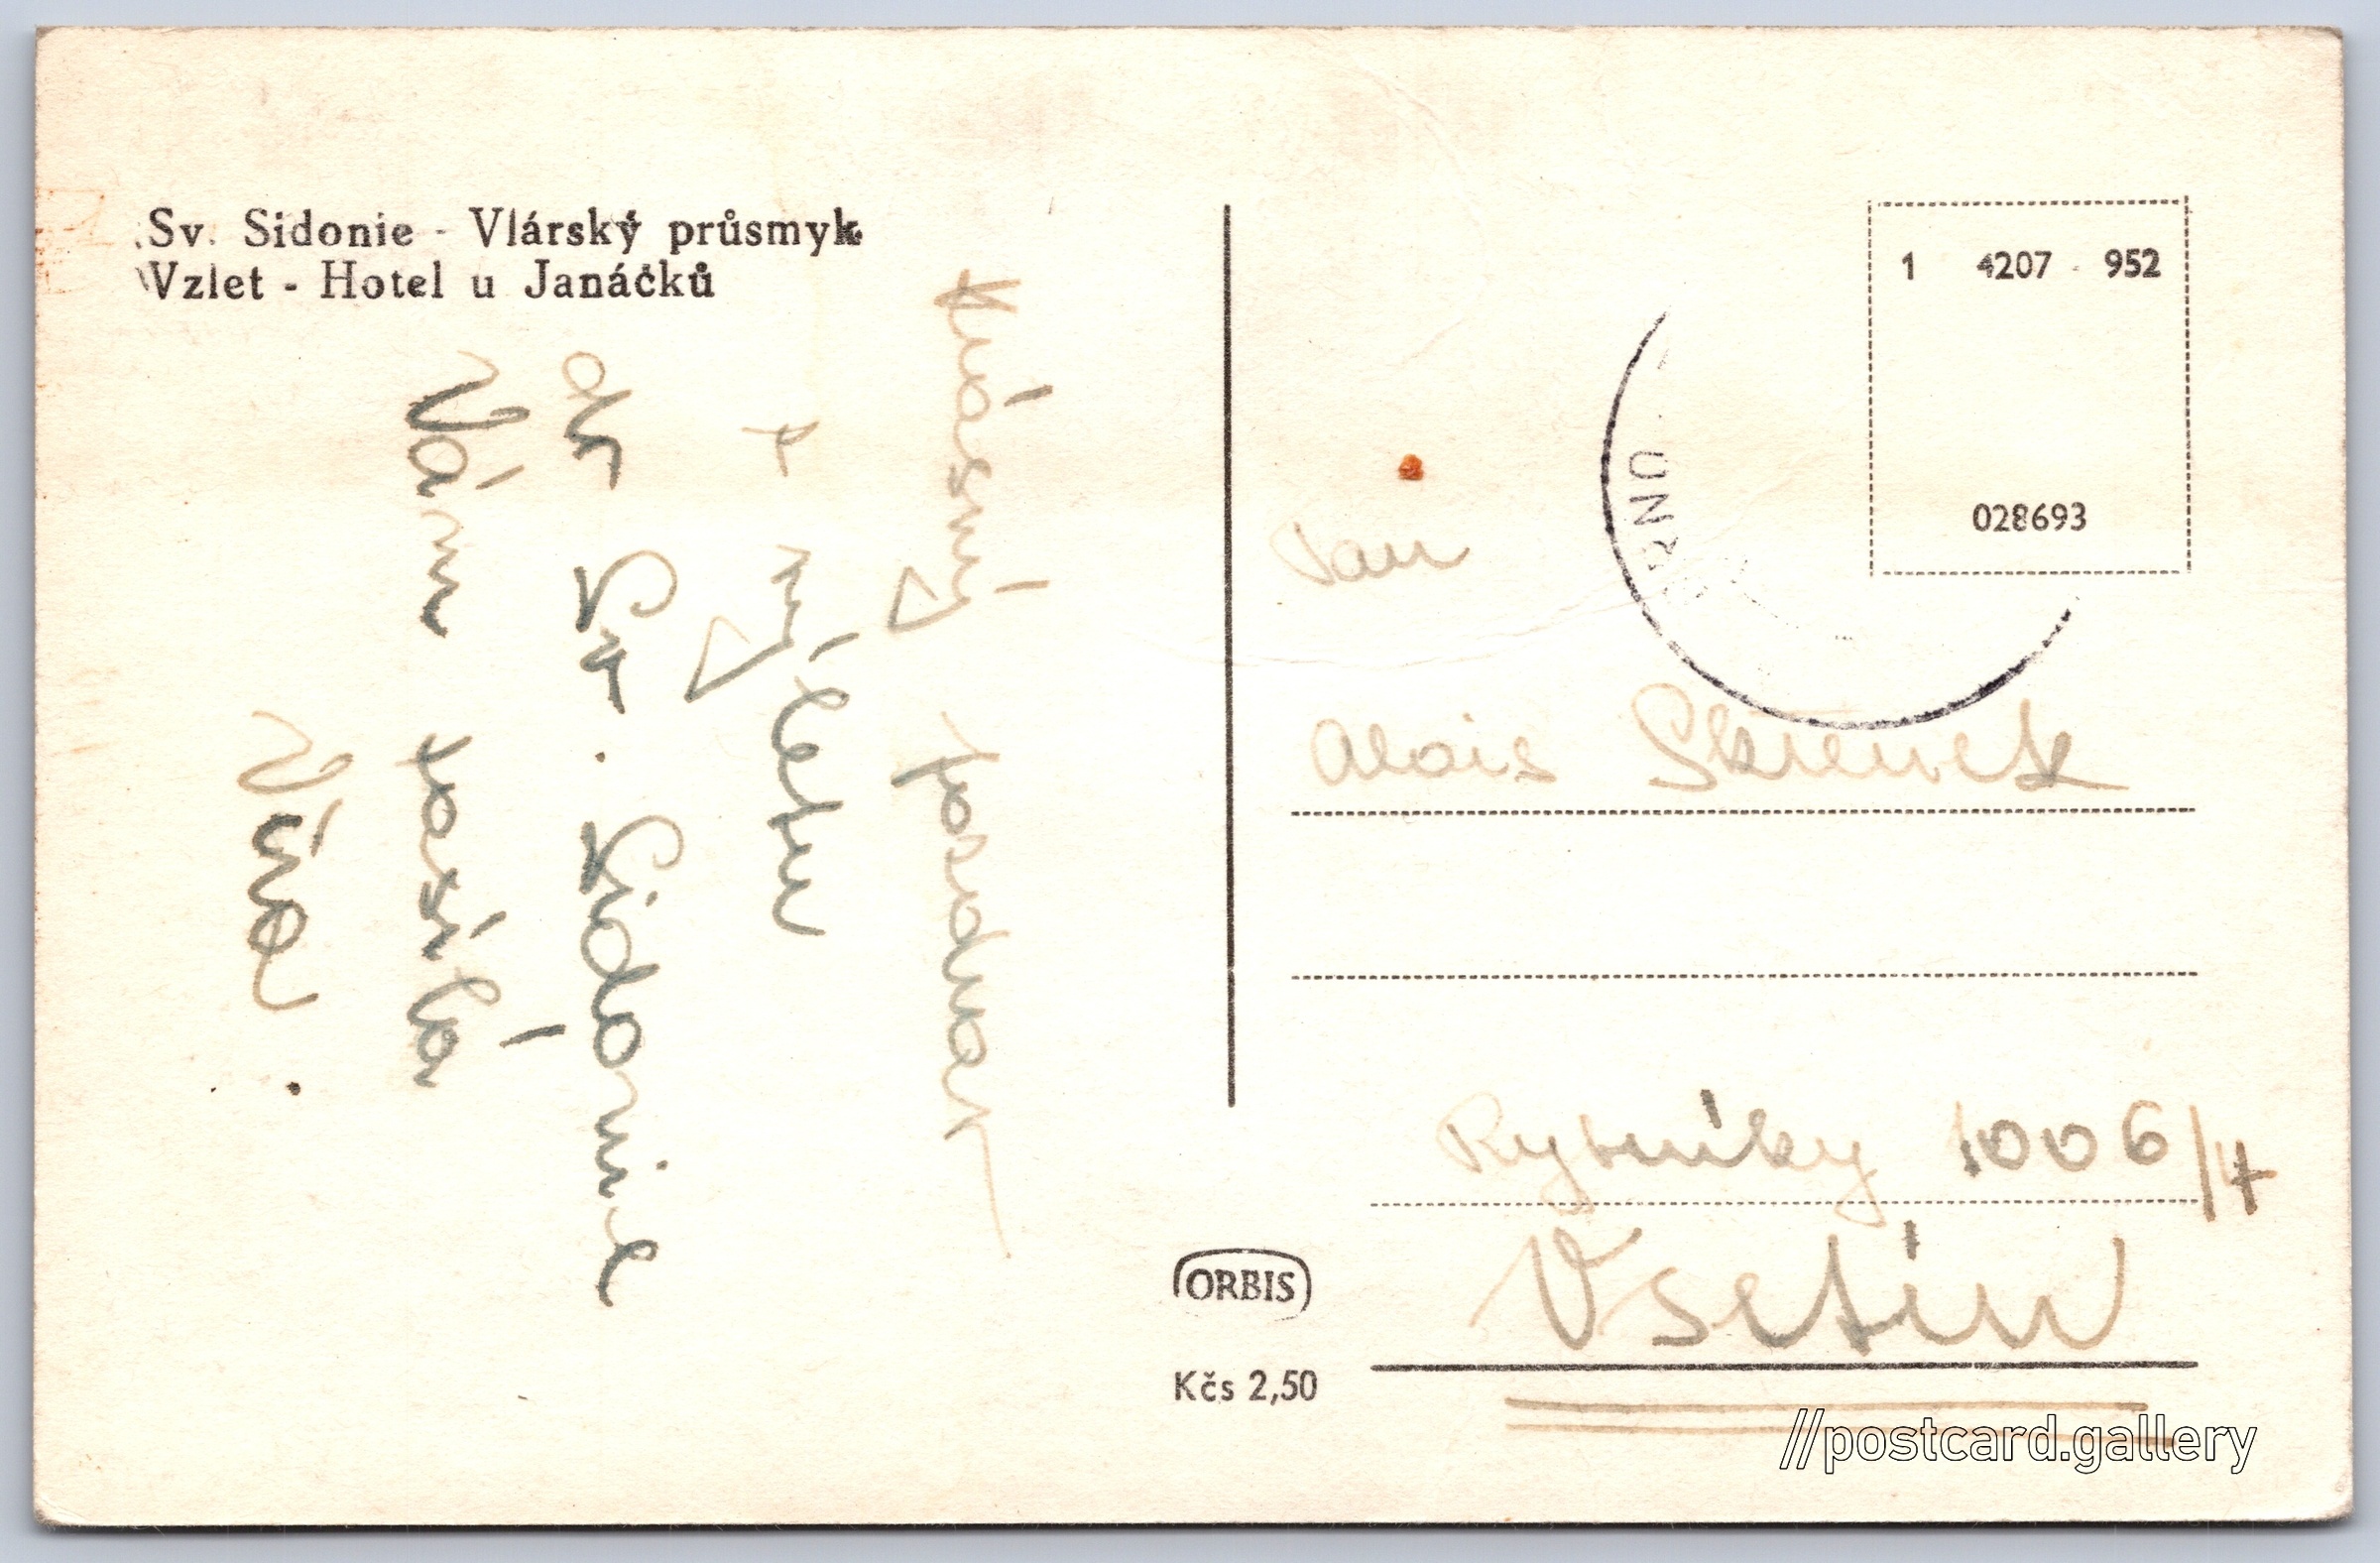 Sv. Sidonie - Vlárský průsmyk
Vzlet - Hotel u Janáčků
Krásný pozdrav
z výletu
do Sv. Sidonie
Vám posílá
Věra.
1 4207 - 952
028693
BRNO
Pan
Alois
Rybníky 1006/4
Vsetín
ORBIS
Kčs 2,50
//postcard.gallery